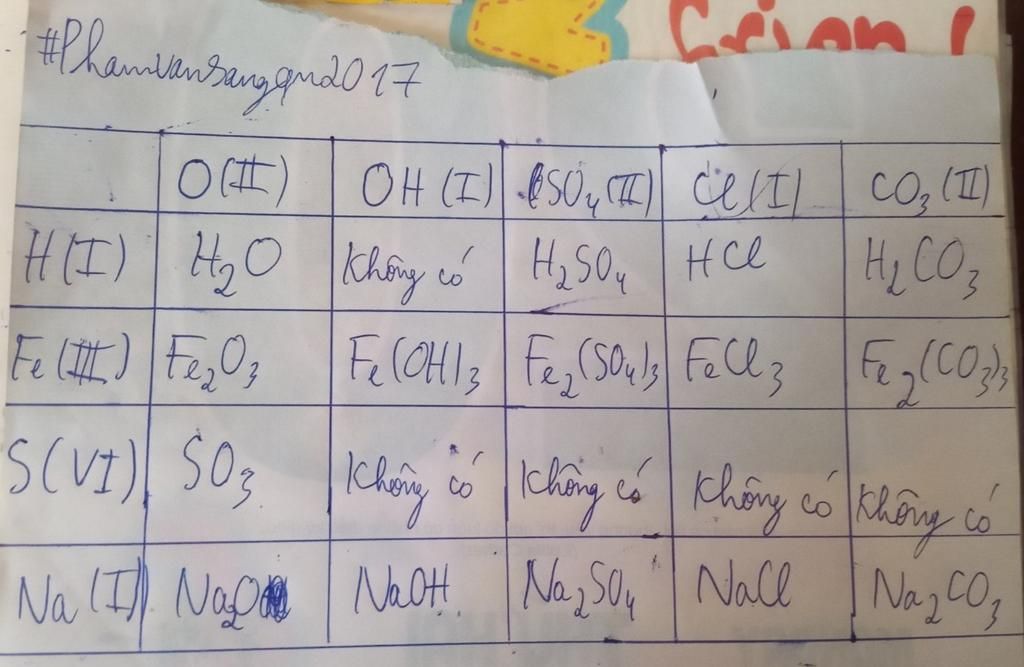 #Phamvansangqn2017
O(II) OH(I) SO₄(II) Cl(I) CO₃(II)
H(I) H₂O Không có H₂SO₄ HCl H₂CO₃
Fe(III) Fe₂O₃ Fe(OH)₃ Fe₂(SO₄)₃ FeCl₃ Fe₂(CO₃)₃
S(VI) SO₃ Không có Không có Không có Không có
Na(I) Na₂O NaOH Na₂SO₄ NaCl Na₂CO₃